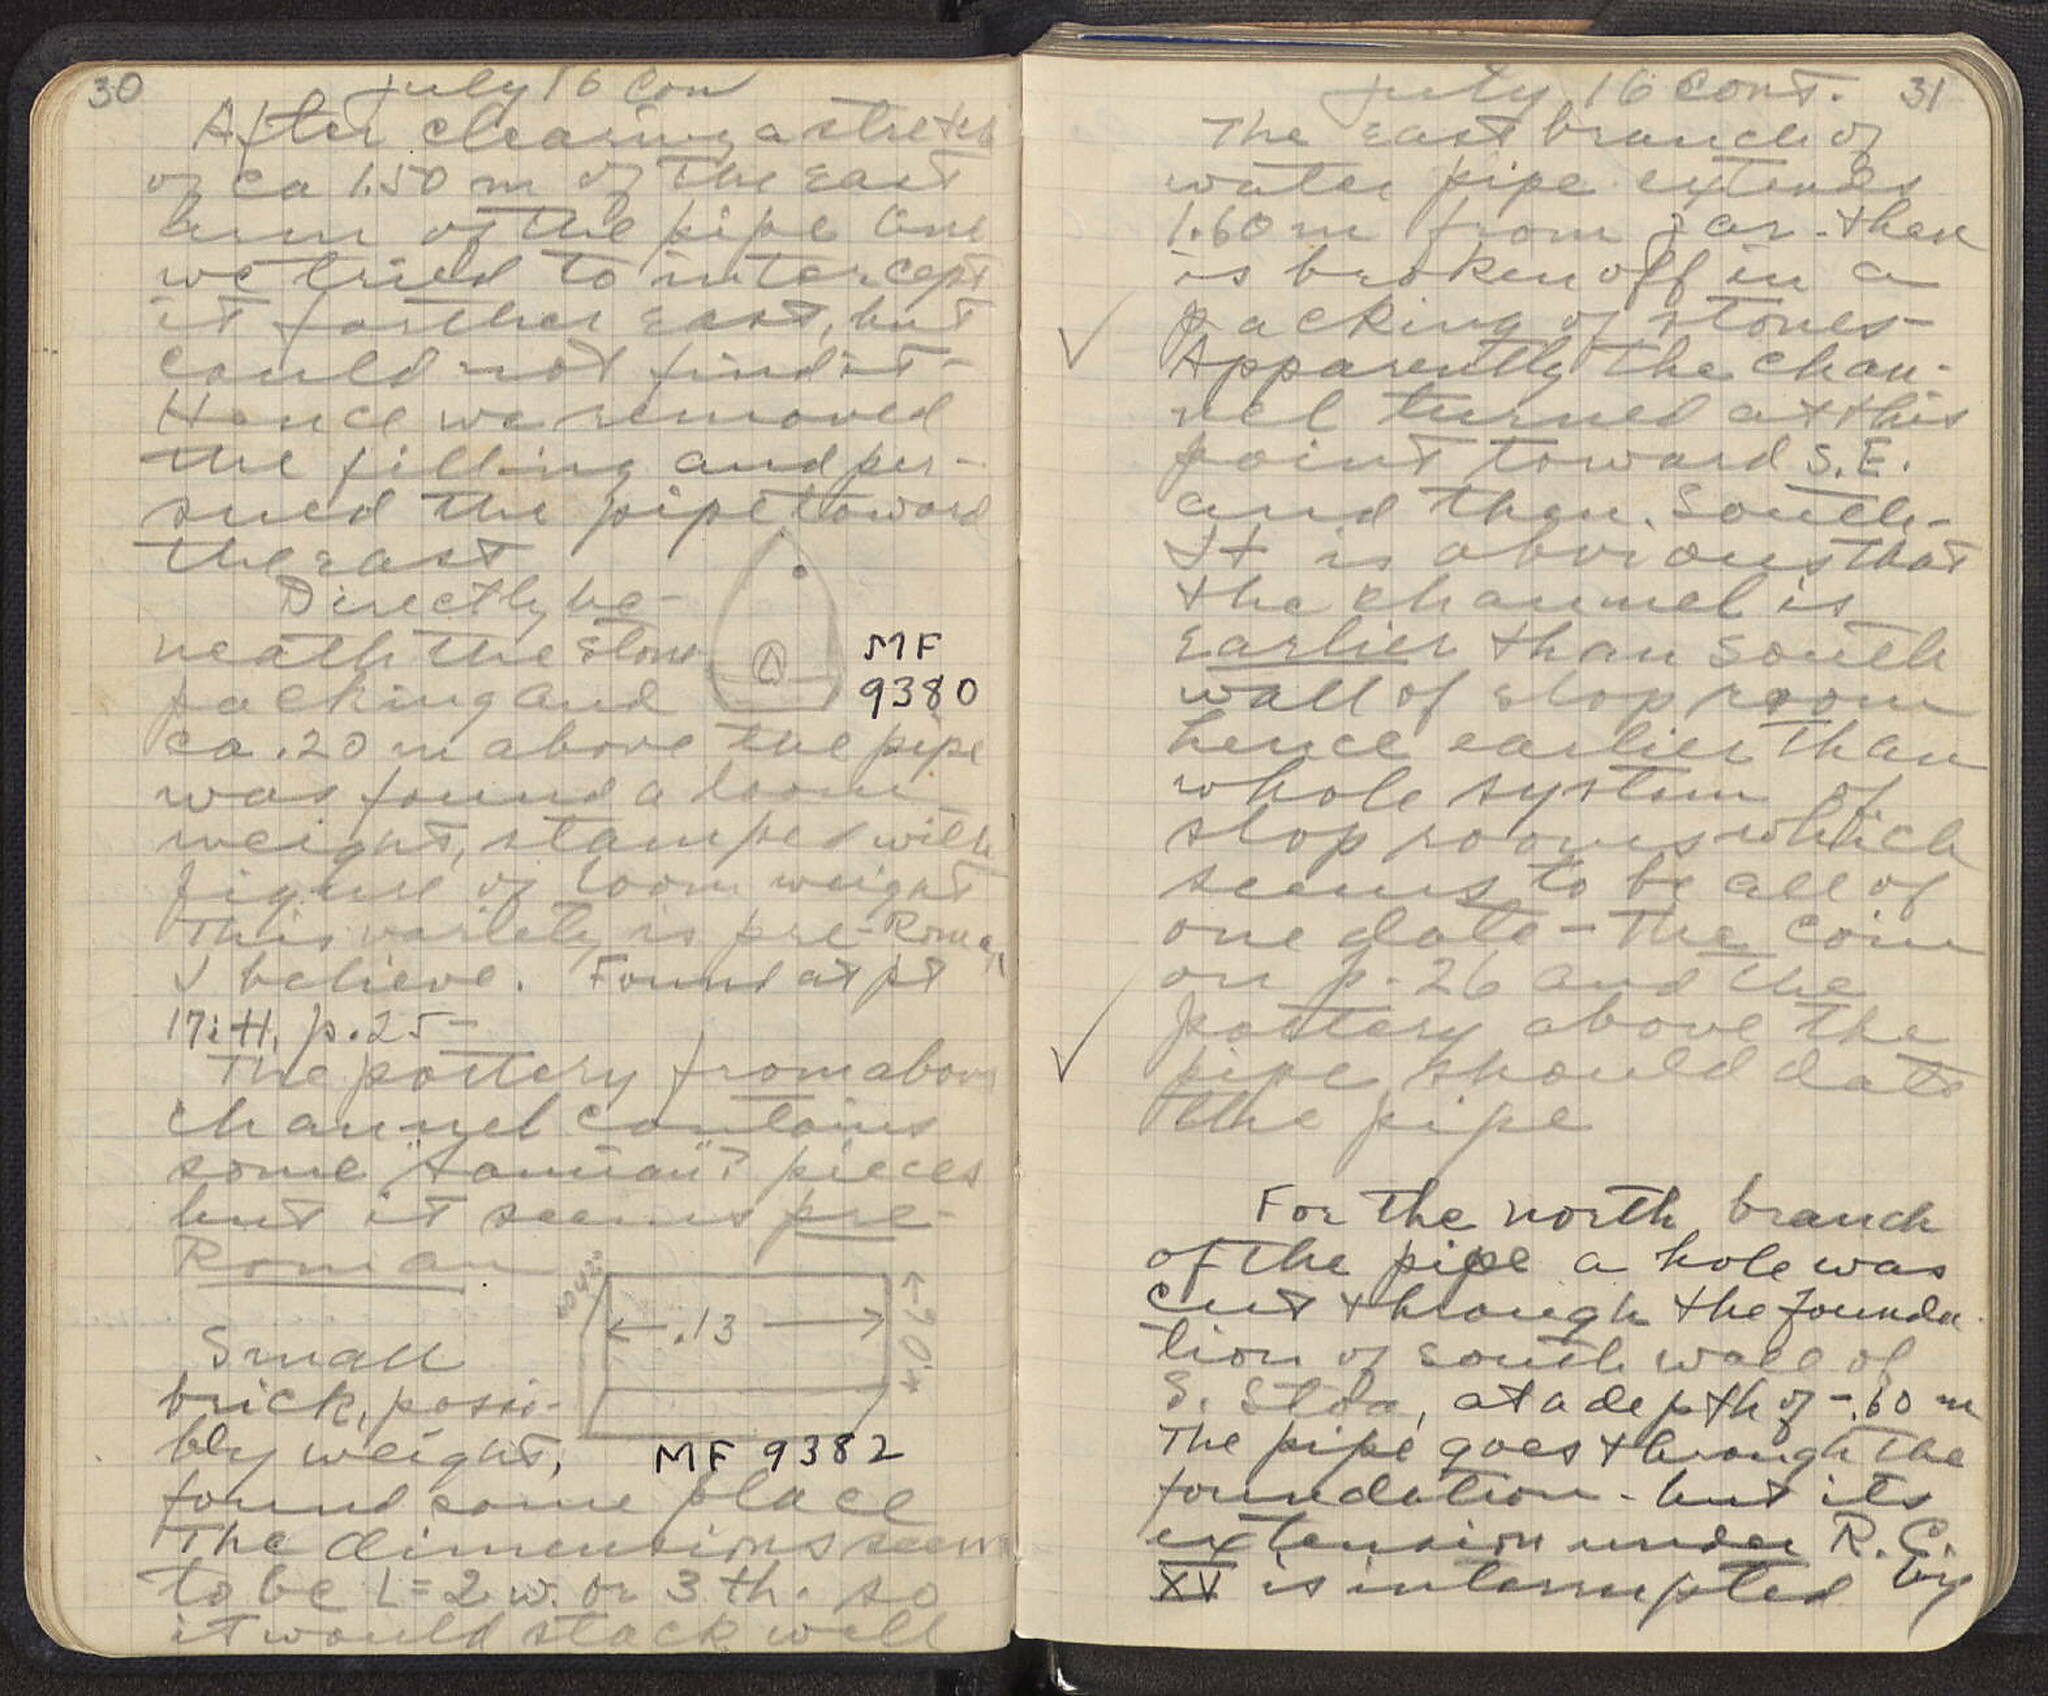 30
July 16 Con
After clearing a stretch
of ca 1.50 m of the east
arm of the pipe line
we tried to intercept
it farther east, but
could not find it -
Hence we removed
the filling and per-
sued the pipe toward
the east
Directly be-
neath the stone
packing and
ca .20 m above the pipe
was found a loom
weight, stamped with
figure of loom weight
This variety is pre-Roman
I believe. Found at pt
17:H, p. 25-
MF
9380
The pottery from above
channel contains
some "Samian"? pieces
but it seems pre-
Roman
.13
Small
brick, possi-
bly weight,
MF 9382
found some place
The dimensions seem
to be L = 2 w. or 3 th. so
it would stack well
July 16 cont. 31
The east branch of
water pipe extends
1.60 m from jar - then
is broken off in a
packing of stones -
Apparently the chan-
nel turned at this
point toward S.E.
and then South -
It is obvious that
the channel is
earlier than south
wall of stop room
hence earlier than
whole system of
stop rooms which
seems to be all of
one date - The coin
on p. 26 and the
pottery above the
pipe should date
the pipe
For the north branch
of the pipe a hole was
cut through the founda-
tion of south wall of
S. Stoa, at a depth of -.60 m
The pipe goes through the
foundation - but its
extension under R. C.
XV is interrupted by